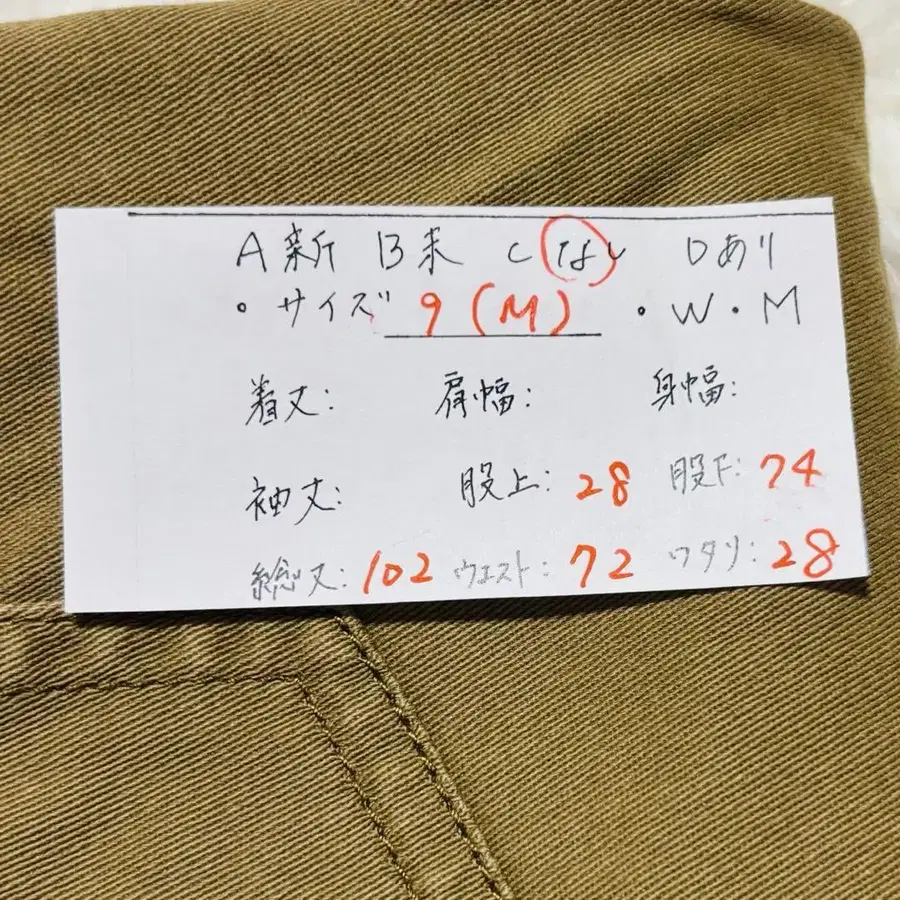 A新 B未 Cなし Dあり
・サイズ 9(M) ・W・M
着丈: 肩幅: 身幅:
袖丈: 股上: 28 股下: 74
総丈: 102 ウエスト: 72 ワタリ: 28